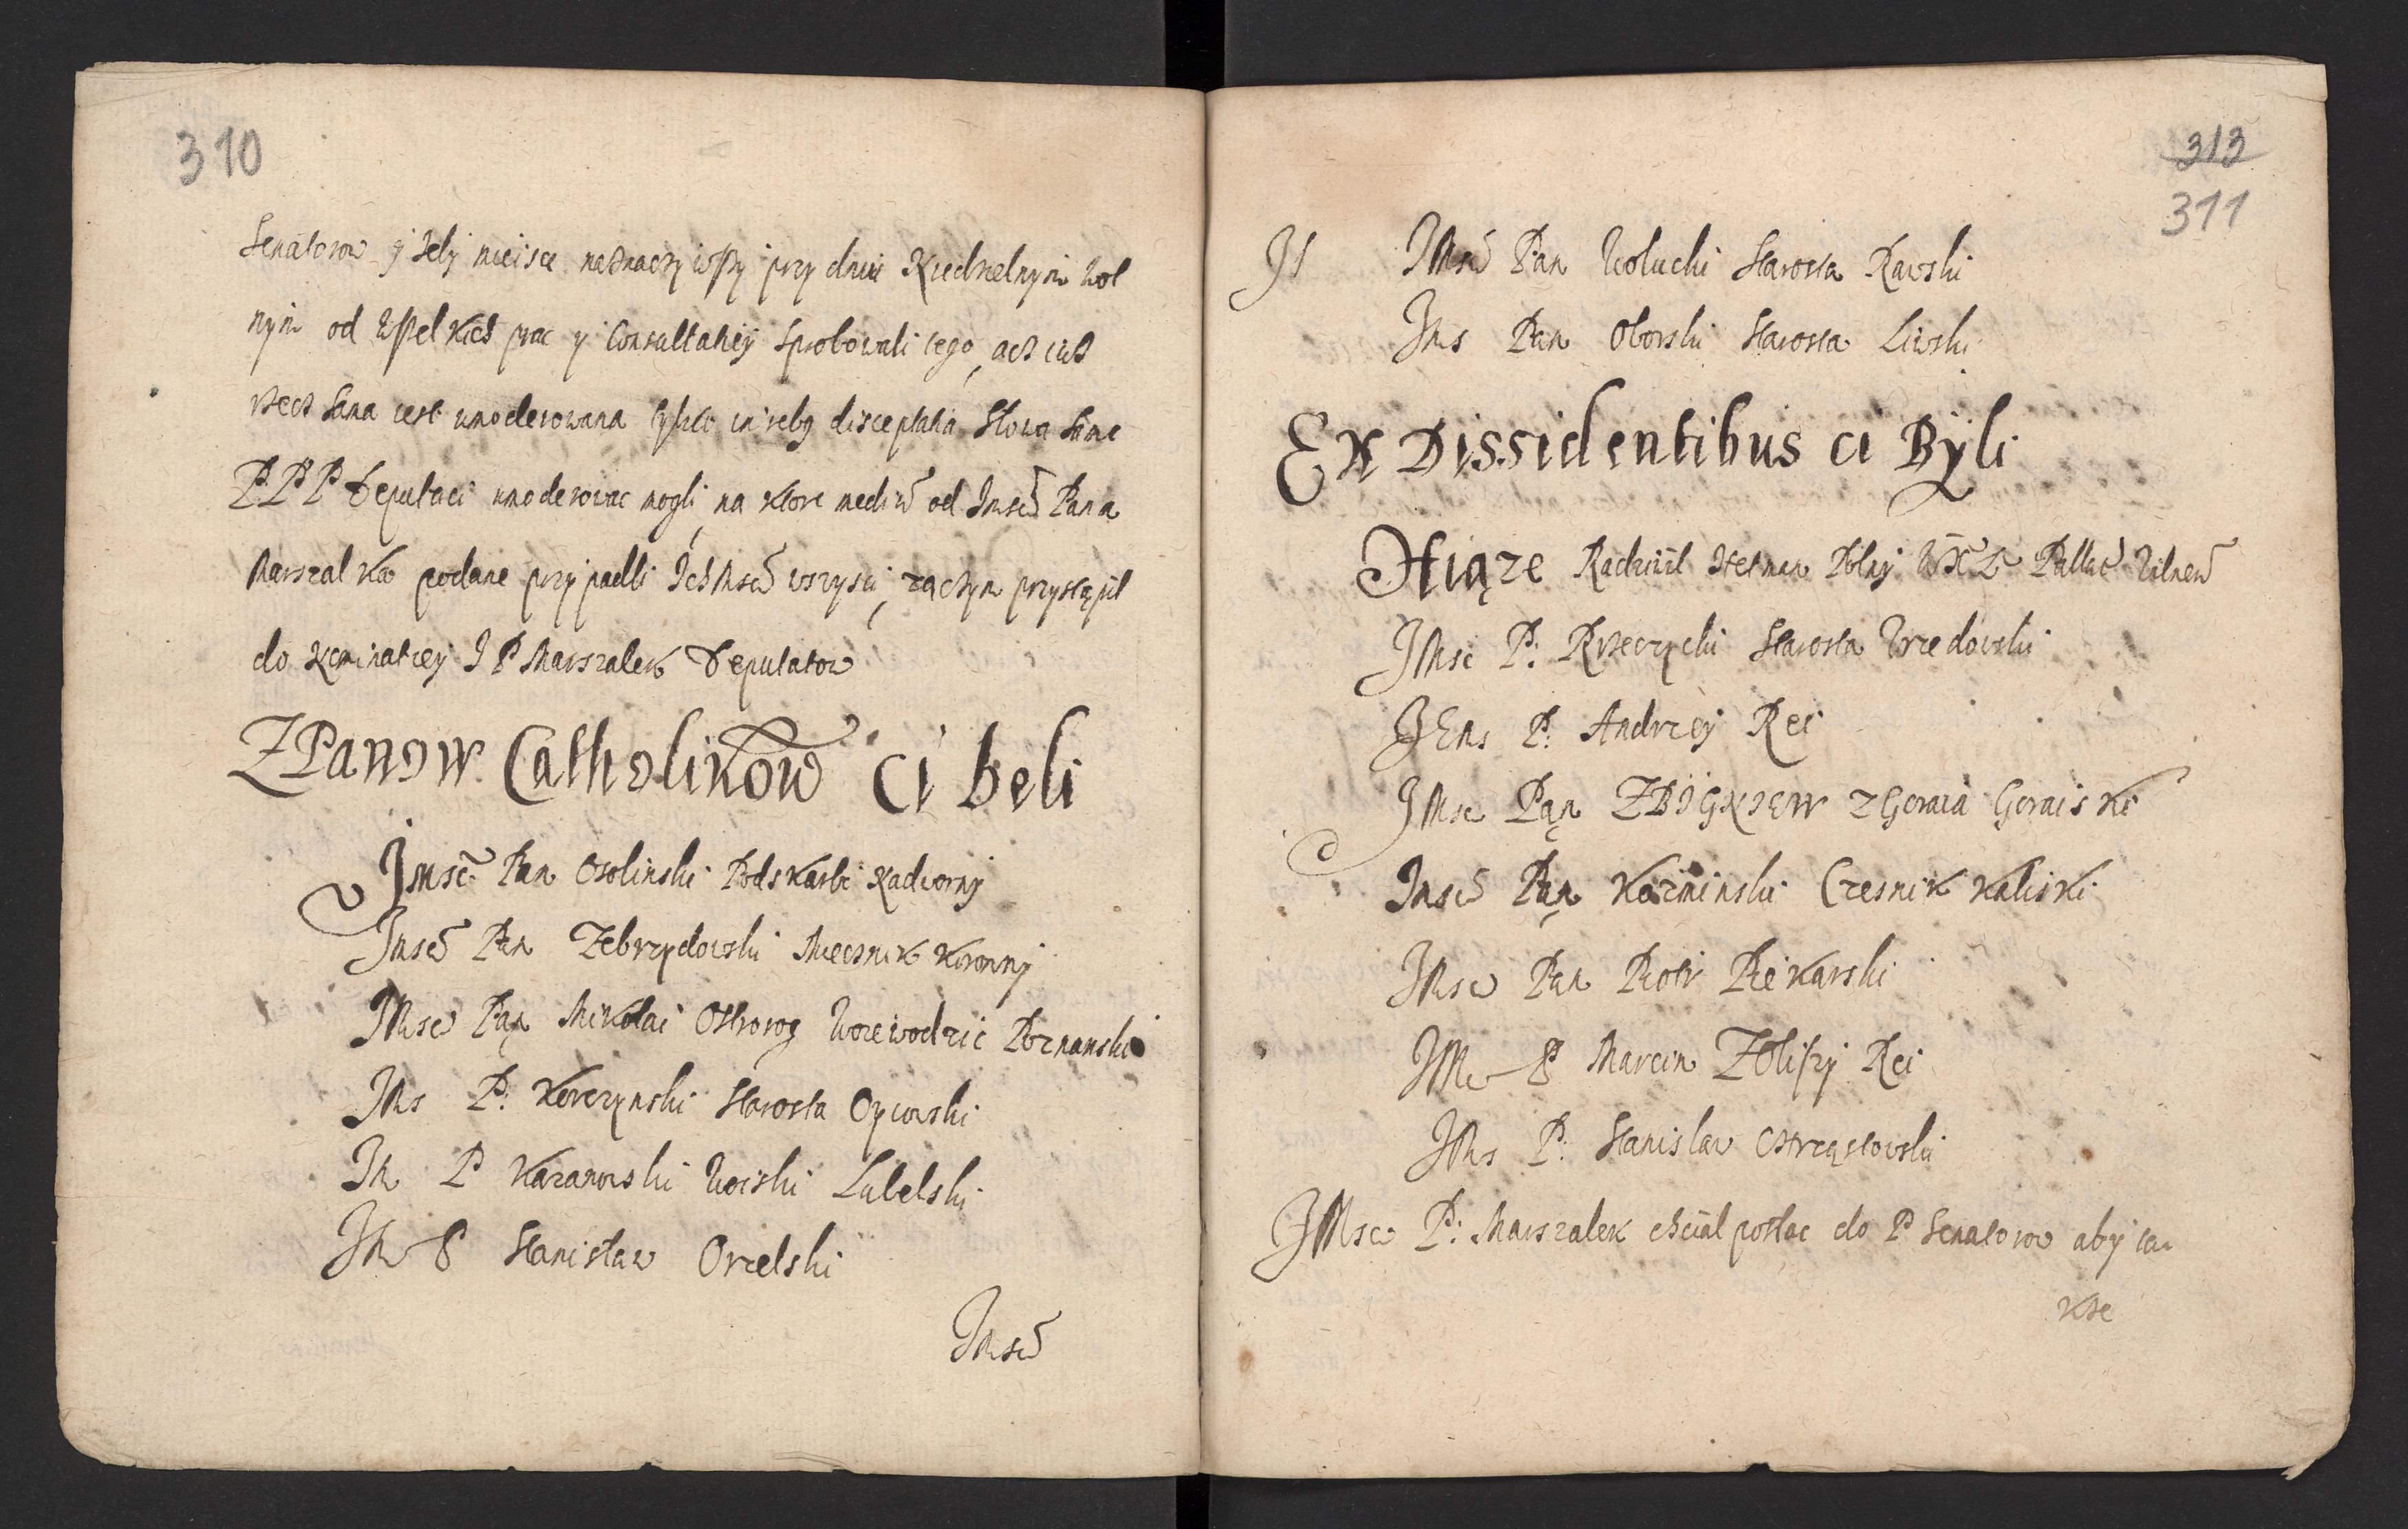 310
Senatorow y Jzby mieisce naznaczywszy przy dniu Niedzielnym wol
nym od wszelkich prac y Consultatiey sprobowali tego, acz iuz
rzecz sama iest umoderowana tylko in rebg disceptatia Słowa same
P. P. P. Deputaci umoderowac mogli, na ktore mediũ od Jmsci Pana
Marszalka podane przypadli Ichmsci wszysci, zaczym przystąpił
do Nominatiey J P Marszalek Deputatow
Z Panow Catholikow Ci beli
Jmsc Pan Osolinski Podskarbi Nadworny
Jmsc Pan Zebrzydowski Miecznik Koronny
JMsc Pan Mikołai Ostrorog Woiewodzic Poznanski
JMs P. Korczynski Starosta
JM P Kazanowski Woiski Lubelski
JM P Stanisław Orzelski
Jmsc
313
311
JMsc Pan Woluchi Starosta Rawski
Jms Pan Oborski Starosta Liwski
Ex Dissidentibus ci Byli
Xiąze Radziwil Hetman Polny W X L Wilne
JMsc P: Rzeczychi Starosta Vrzedowski
JEms P: Andrzey Rei
JMsc Pan ZBIGNIEW z Goraia Goraiski
Jmsc Pan Kozminski Czesnik Kaliski
JMsc Pan Piotr Piekarski
JMc P Marcin Rei
JMs P. Stanislaw Chrząstowski
JMsc P: Marszalek chciał posłac do P Senatorow aby ta
kze